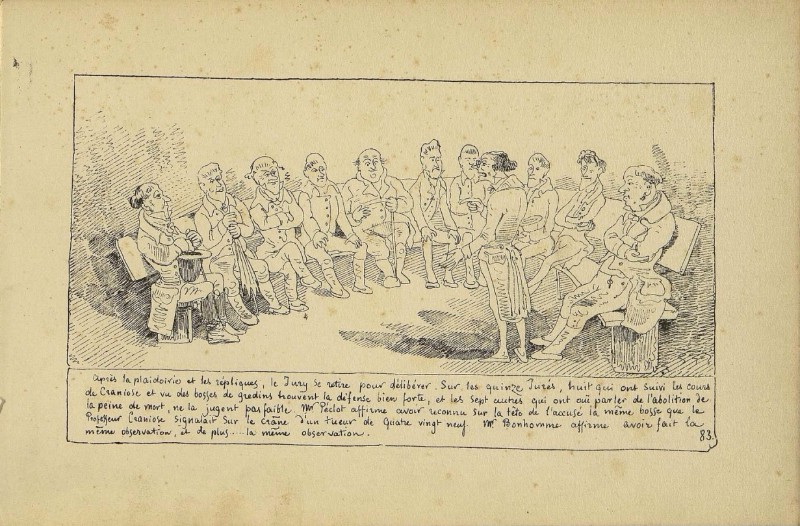 Après la plaidoirie et les répliques, le Jury se retire pour délibérer. Sur les quinze Jurés, huit qui ont suivi les cours
de Craniose et vu des bosses de gredins trouvent la défense bien forte, et les sept autres qui ont ouï parler de l'abolition de
la peine de mort, ne la jugent pas faible. Mr Péclot affirme avoir reconnu sur la tête de l'accusé la même bosse que le
Professeur Craniose signalait sur le crâne d'un tueur de Quatre vingt neuf. Mr Bonhomme affirme avoir fait la
même observation, et de plus.... la même observation.
83.